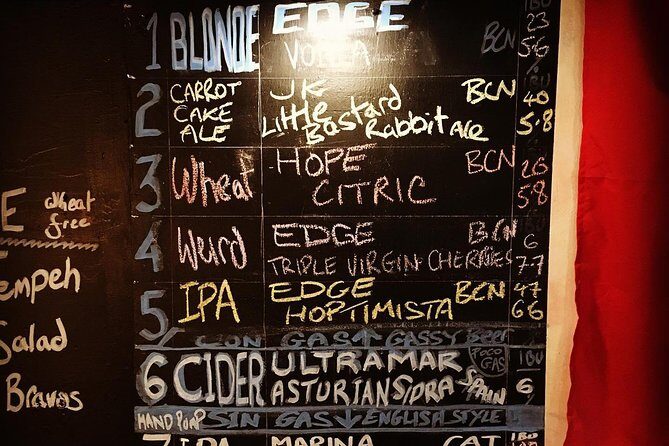 IBU
1 BLONDE EDGE BCN 23
5·6
2 CARROT CAKE ALE JK BCN 40
Little Bastard Rabbit Ale 5·8
3 Wheat HOPE BCN
CITRIC 5·8
4 Weird EDGE BCN 6
TRIPLE VIRGIN CHERRIES 7·7
5 IPA EDGE BCN 47
HOPTIMISTA 6·6
CON GAS ↑ GASSY BEER
6 CIDER ULTRAMAR POCO GAS IBU
ASTURIAN SIDRA SPAIN 6
HAND PUMP SIN GAS ↓ ENGLISH STYLE
7 IPA MARINA CAT IBU
E wheat free
empeh
Salad
Bravas